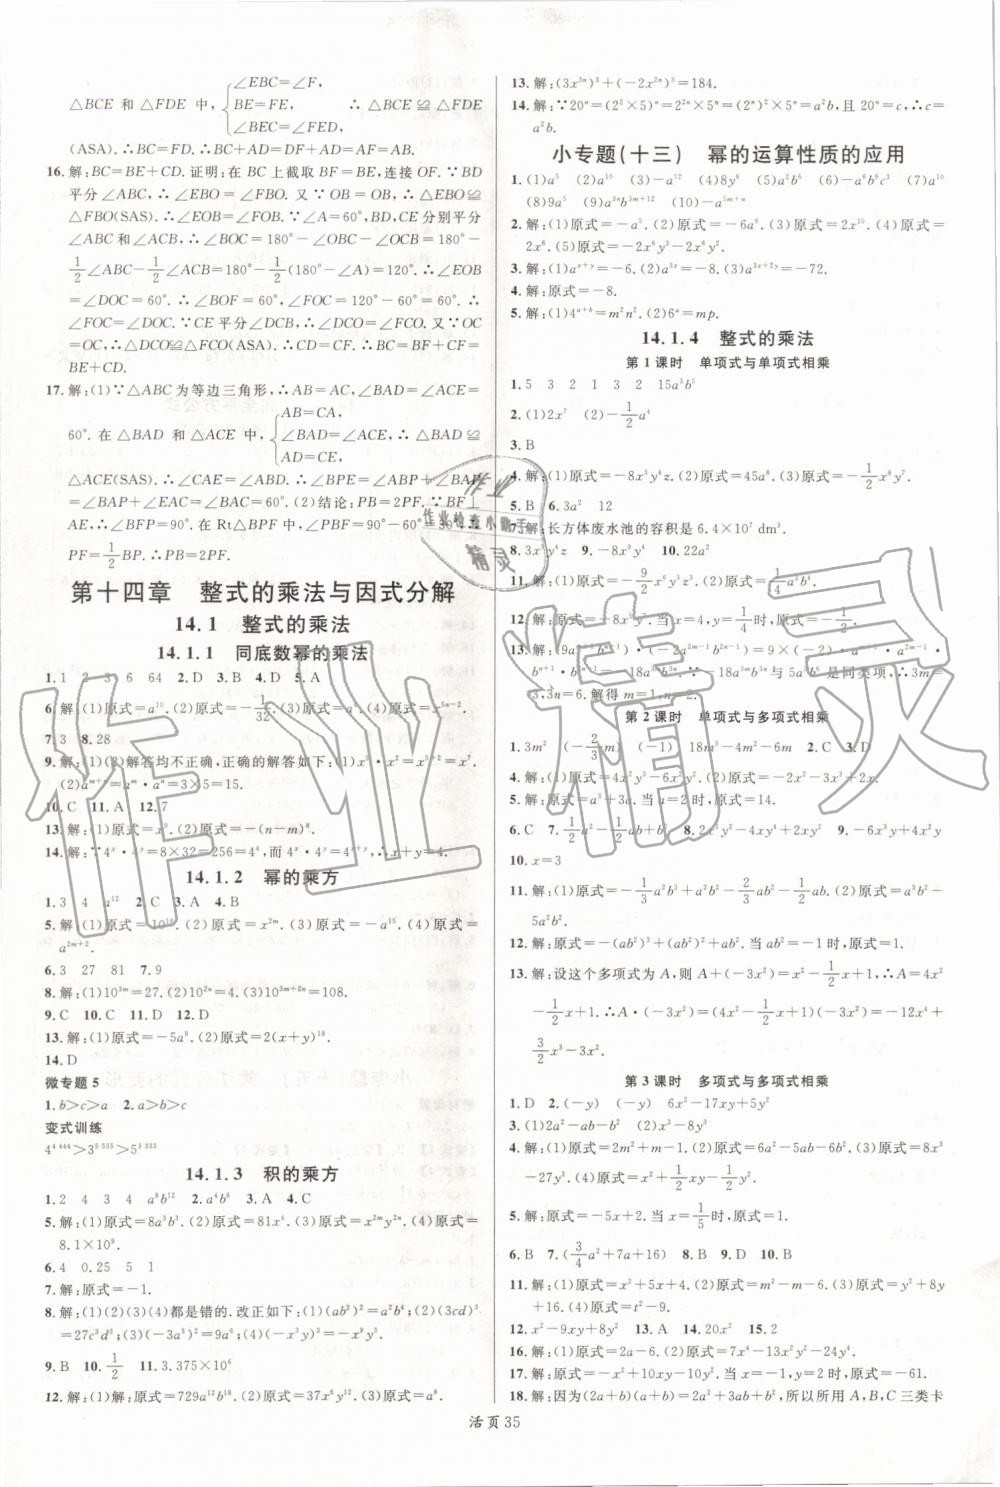 ∠EBC=∠F,
△BCE 和 △FDE 中, BE=FE, ∴△BCE≌△FDE
∠BEC=∠FED,
(ASA).∴BC=FD.∴BC+AD=DF+AD=AF=AB.
16.解:BC=BE+CD.证明:在 BC 上截取 BF=BE,连接 OF.∵BD
平分∠ABC,∴∠EBO=∠FBO.又∵OB=OB,∴△EBO≌
△FBO(SAS).∴∠EOB=∠FOB.∵∠A=60°,BD,CE 分别平分
∠ABC 和∠ACB,∴∠BOC=180°-∠OBC-∠OCB=180°-
1/2∠ABC-1/2∠ACB=180°-1/2(180°-∠A)=120°.∴∠EOB
=∠DOC=60°.∴∠BOF=60°,∠FOC=120°-60°=60°.∴
∠FOC=∠DOC.∵CE 平分∠DCB,∴∠DCO=∠FCO.又∵OC
=OC,∴△DCO≌△FCO(ASA).∴CD=CF.∴BC=BF+CF=BE+CD.
17.解:(1)∵△ABC 为等边三角形,∴AB=AC,∠BAD=∠ACE=
AB=CA,
60°.在 △BAD 和 △ACE 中, ∠BAD=∠ACE,∴△BAD≌
AD=CE,
△ACE(SAS).∴∠CAE=∠ABD.∴∠BPE=∠ABP+∠BAP
=∠BAP+∠EAC=∠BAC=60°.(2)结论:PB=2PF.∵BF⊥
AE,∴∠BFP=90°.在 Rt△BPF 中,∠PBF=90°-60°=30°,∴
PF=1/2BP.∴PB=2PF.
第十四章 整式的乘法与因式分解
14.1 整式的乘法
14.1.1 同底数幂的乘法
1.1 2 3 6 64 2.D 3.B 4.D 5.A
6.解:(1)原式=a¹⁰.(2)原式=-1/32.(3)原式=a⁶.(4)原式=x⁵ⁿ⁻².
7.3 8.28
(2)aᵐ⁺ⁿ=aᵐ·aⁿ=3×5=15.
10.C 11.A 12.7
13.解:(1)原式=x⁹.(2)原式=-(n-m)⁸.
14.解:∵4ˣ·4ʸ=8×32=256=4⁴,而4ˣ·4ʸ=4ˣ⁺ʸ,∴x+y=4.
14.1.2 幂的乘方
1.3 4 a¹² 2.C 3.A 4.B
5.解:(1)原式=10¹⁵.(2)原式=x²ᵐ.(3)原式=-a¹⁵.(4)原式=
a²ᵐ⁺².
6.3 27 81 7.9
8.解:(1)10³ᵐ=27.(2)10²ⁿ=4.(3)10³ᵐ⁺²ⁿ=108.
9.C 10.C 11.D 12.D
13.解:(1)原式=-5a⁹.(2)原式=2(x+y)¹⁸.
14.D
微专题 5
1.b>c>a 2.a>b>c
变式训练
4⁴ ⁴⁴⁴>3⁵ ⁵⁵⁵>5³ ³³³
14.1.3 积的乘方
1.2 4 3 4 a⁸b¹² 2.a⁶b⁶ 3.A 4.C
5.解:(1)原式=8a³b³.(2)原式=81x⁴.(3)原式=x²ᵐy²ⁿ.(4)原式=
8.1×10⁹.
6.4 0.25 5 1
7.解:原式=-1.
8.解:(1)(2)(3)(4)都是错的.改正如下:(1)(ab²)²=a²b⁴;(2)(3cd)³
=27c³d³;(3)(-3a³)²=9a⁶;(4)(-x³y)³=-x⁹y³.
9.B 10.1/2 11.3.375×10⁶
12.解:(1)解:原式=729a¹²b¹⁸.(2)原式=37x⁶y¹².(3)原式=a⁸.
13.解:(3x³ⁿ)³+(-2x²ⁿ)³=184.
14.解:∵20ⁿ=(2²×5)ⁿ=2²ⁿ×5ⁿ=(2ⁿ)²×5ⁿ=a²b,且 20ⁿ=c,∴c=
a²b.
小专题(十三) 幂的运算性质的应用
1.(1)a⁵ (2)a⁵ (3)-a¹² (4)8y⁶ (5)a²b⁴ (6)-a⁶b⁹c³ (7)a¹⁰
(8)9a⁵ (9)a³ⁿb³ᵐ⁺¹² (10)-a⁵ᵐ⁺ⁿ
2.解:(1)原式=-a⁵.(2)原式=-6a⁶.(3)原式=2a¹⁰.(4)原式=
2x⁶.(5)原式=-2x⁶y³-2x⁶y².
3.解:(1)aˣ⁺ʸ=-6.(2)a³ˣ=-8.(3)a³ˣ⁺²ʸ=-72.
4.解:原式=-8.
5.解:(1)4ᵃ⁺ᵇ=m²n².(2)6ᵃ=mp.
14.1.4 整式的乘法
第 1 课时 单项式与单项式相乘
1.5 3 2 1 3 2 15a³b⁵
2.(1)2x⁷ (2)-1/2a⁴
3.B
4.解:(1)原式=-8x³y⁴z.(2)原式=45a⁸.(3)原式=-1/2x⁸y⁷.
5.B 6.3a² 12
7.解:长方体废水池的容积是 6.4×10⁷ dm³.
8.3x³y⁴z 9.-4x⁴ 10.22a²
第 2 课时 单项式与多项式相乘
1.3m² (-2/3m) (-1) 18m³-4m²-6m 2.C 3.D
5.解:原式=a³+3a.当 a=2 时,原式=14.
6.C 7.1/2a²-1/2ab+b² 8.2x²y-4xy²+2xy 9.-6x³y+4x²y
10.x=3
5a²b².
12.解:原式=-(ab²)³+(ab²)²+ab².当 ab²=-1 时,原式=1.
13.解:设这个多项式为 A,则原式=A+(-3x²)=x²-1/2x+1.∴A=4x²
-1/2x+1.∴A·(-3x²)=(4x²-1/2x+1)(-3x²)=-12x⁴+
3/2x³-3x².
第 3 课时 多项式与多项式相乘
1.D 2.(-y) (-y) 6x²-17xy+5y²
3.(1)2a²-ab-b² (2)x³-8y³
4.解:(1)原式=2m²+m-1.(2)原式=6a²-5ab-6b².(3)原式=
5.解:原式=-5x+2.当 x=1/5时,原式=1.
6.B 7.B 8.D 9.A 10.(3/4a²+7a+16)
11.解:(1)原式=x²+5x+4.(2)原式=m²-m-6.(3)原式=y²+8y
+16.(4)原式=t²-9.
12.x²-9xy+8y² 13.A 14.20x² 15.2
16.解:(1)原式=2a-6.(2)原式=7x²-13xy-24y².
17.解:原式=-11x²+10xy-10y².当 x=1,y=-2时,原式=-61.
18.解:因为(2a+b)(a+b)=2a²+3ab+b²,所以所用 A,B,C 三类卡
活页 35
作业
作业检查小助手
精灵
作业精灵